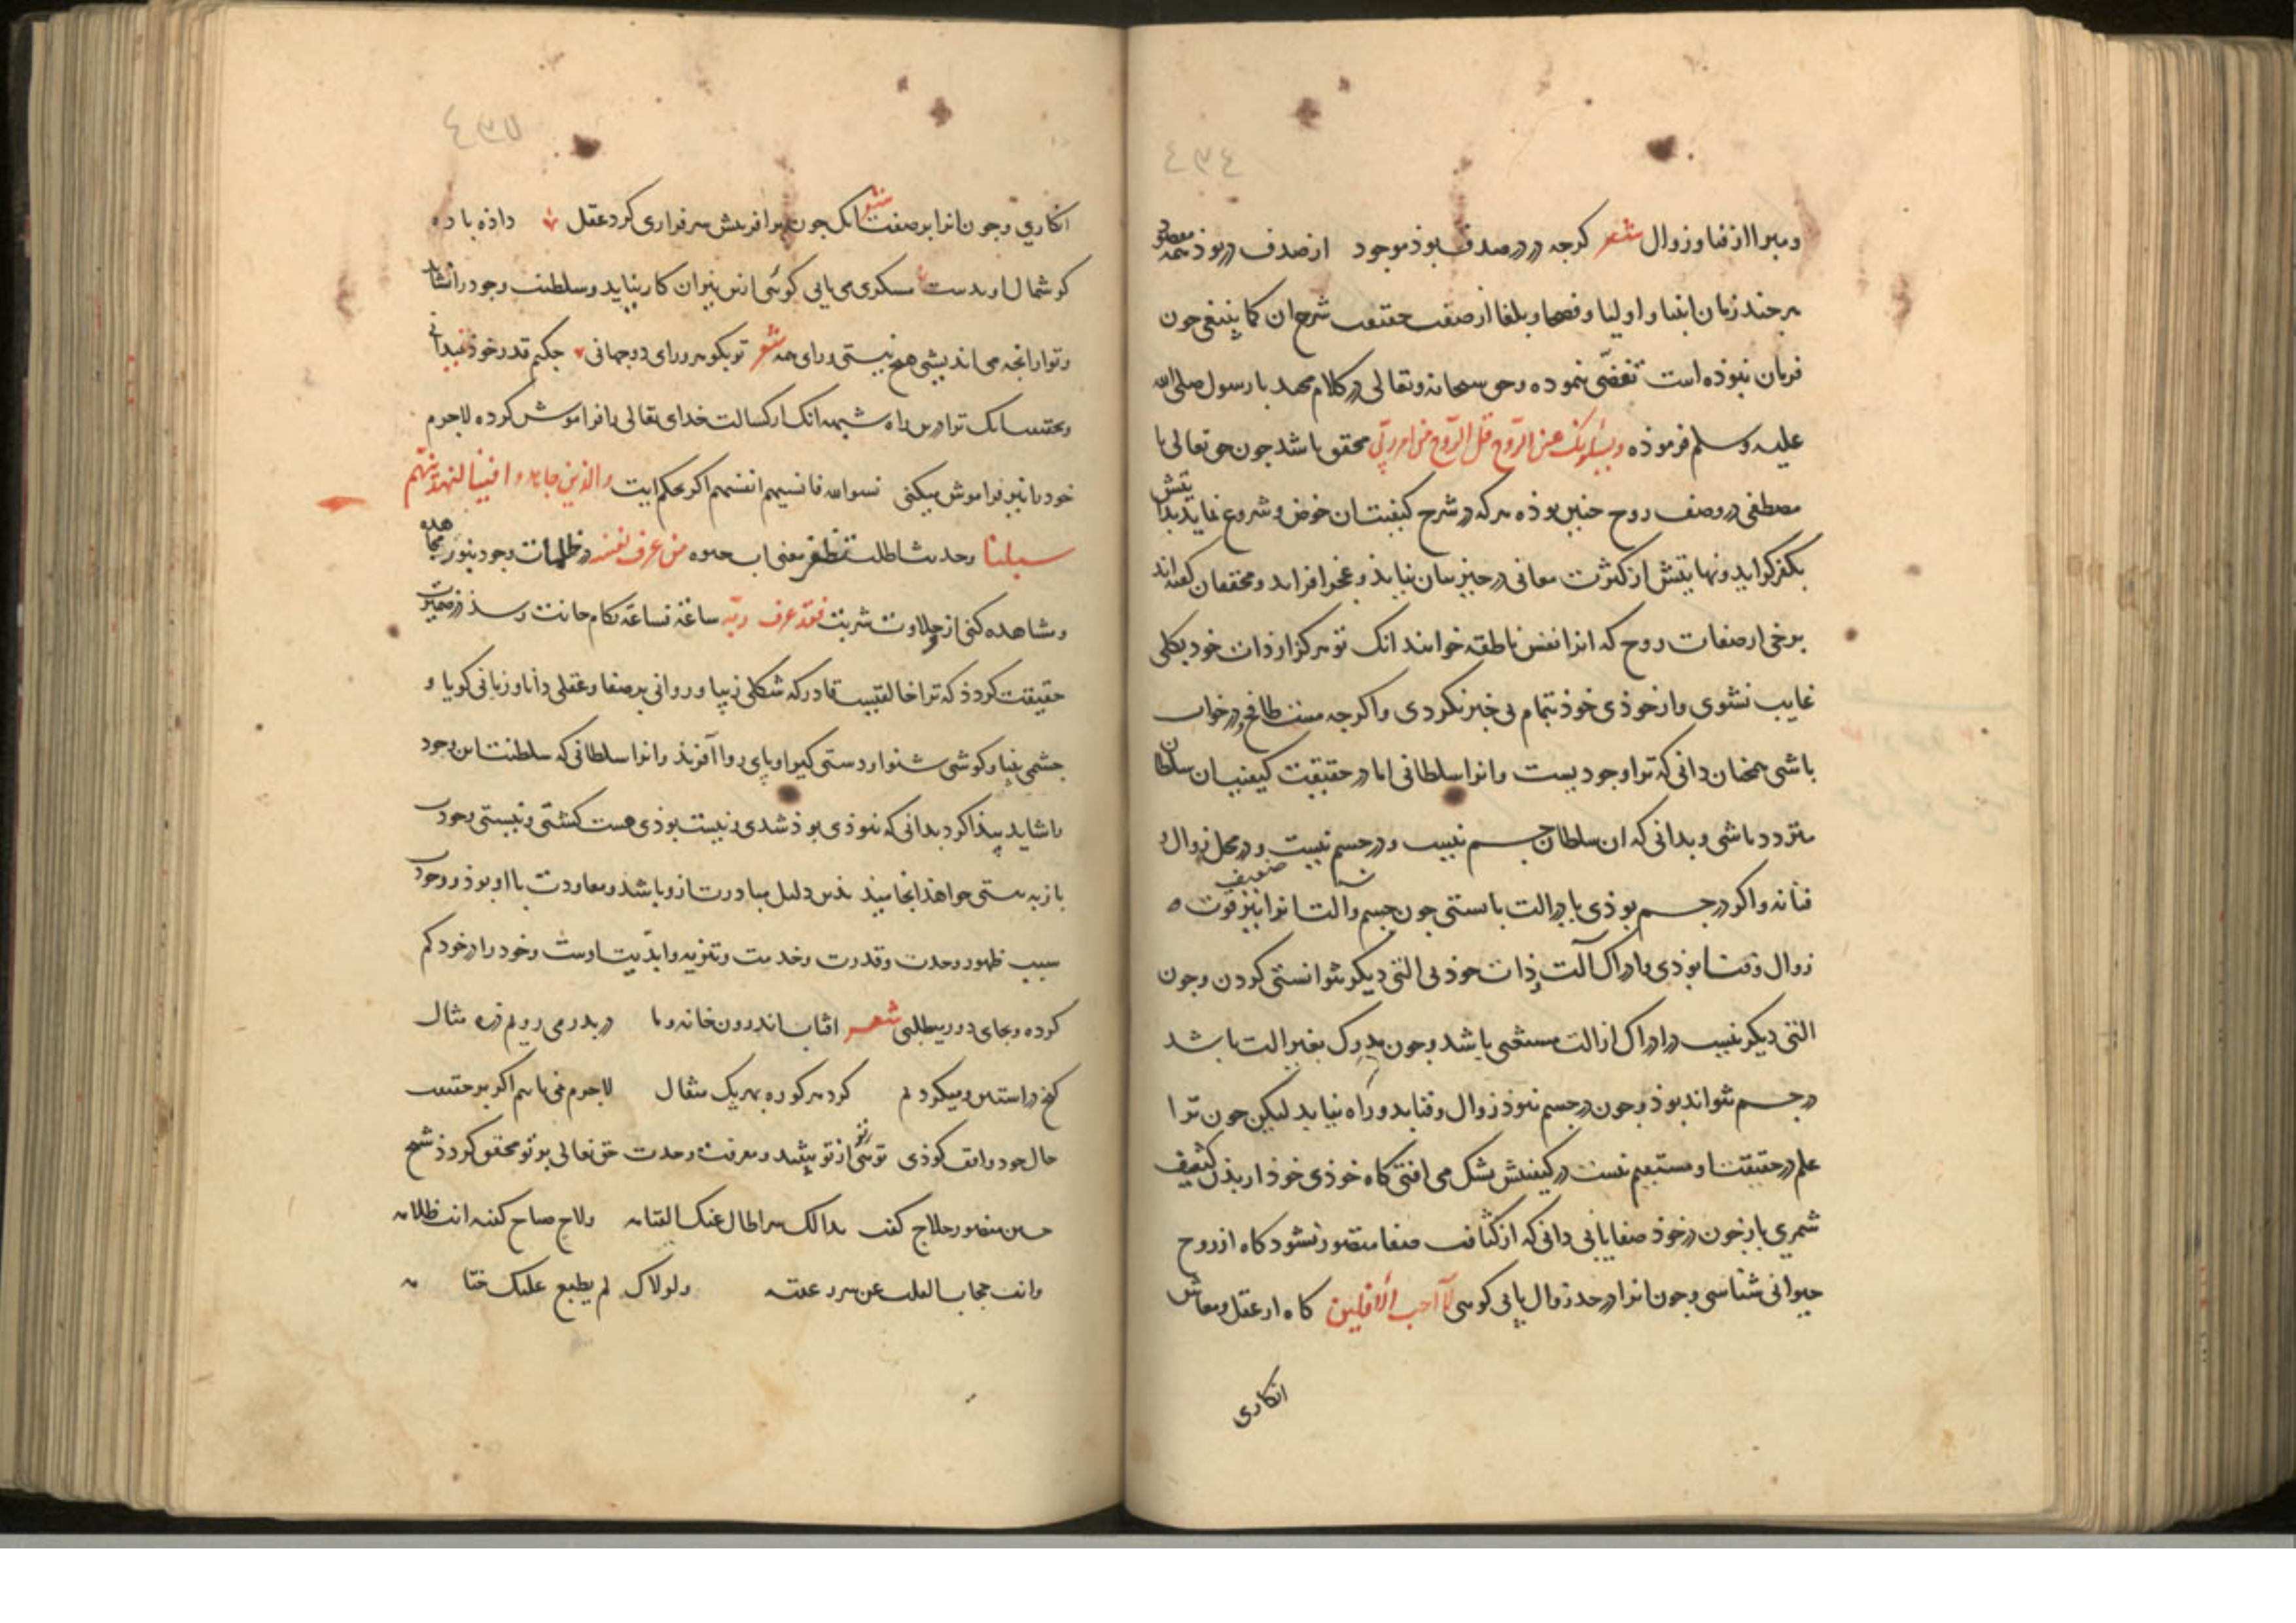 ٤٣٤
ومبرا از فنا و زوال شعر کرچه در صدف بوذ موجود از صدف در بوذ همه مقصود
هرچند زبان انبیا و اولیا و فصحا و بلغا از صفت حقیقت شرح ان کما ینبغی چون
فرمان نبوذه است تفصّی نموده وحق سبحانه وتعالی در کلام مجید با رسول صلی الله
علیه وسلم فرموذه ویسئلونک عن الروح قل الروح من امر ربّی محقق باشد جون حق تعالی با
مصطفی در وصف روح جنین بوذه هرکه در شرح کیفیت ان خوض و شروع نماید بدایتش
بکفر کراید ونهایتش از کثرت معانی در حیز بیان نیاید و بعجز افزاید و محققان کفته اند
برخی از صفات روح که انرا نفس ناطقه خوانند انک تو هرکز از ذات خود بکلی
غایب نشوی و از خوذی خوذ بتمام بی خبر نکردی و اکرجه مست طافح و در خواب
باشی همچنان دانی که ترا وجودیست و انرا سلطانی اما در حقیقت کیفیت ان سلطان
متردد باشی و بدانی که ان سلطان جسم نیست و در جسم نیست و در محل زوال و
فنا نه و اکر در جسم بوذی با درالت بایستی جون جسم و آلت انرا نیز قوت ضعیف
زوال و فنا بوذی و ادراک آلت بذات خوذ بی التی دیکر نتوانستی کردن وجون
التی دیکر نیست در ادراک از الت مستغنی باشد وجون مدرک بغیر الت باشد
در جسم نتواند بوذ وجون در جسم نبوذ زوال و فنا بدو راه نیابد لیکن جون ترا
علم در حقیقت او مستقیم نیست در کیفیتش بشک می افتی کاه خوذی خوذ از بذن کثیف
شمری باز جون در خوذ صفا یابی دانی که از کثافت صفا متصور نشود کاه از روح
حیوانی شناسی وجون انرا در حد زوال یابی کویی لا احب الآفلین کاه از عقل و معاش
انکاری
٤٣٥
انکاری وجون انرا بر صفت انک شعر جون برافرینش سرفرازی کرد عقل داذه باده
کوشمال او بدست مسکری می یابی کوئی ازین میزان کار نیاید و سلطنت وجود را نشاید
وتو از انجه می اندیشی هیچ نیستی ورای همه شعر تو بکوهر ورای دو جهانی جکنم قدر خوذ نمیدانی
وبحقیقت انک ترا درین راه شبهه انک از کسالت خدای تعالی را فراموش کرده لاجرم
خود را نیز فراموش میکنی نسوا الله فانسیهم انفسهم اکر بحکم ایت والذین جاهدوا فینا لنهدینهم
سبلنا وحدیث اطلب تظفر معنی اب حیوه من عرف نفسه در ظلمات وجود بنور مجاهده
ومشاهده کنی از حلاوت شربت فقد عرف ربّه ساعة فساعة بکام جانت رسذ در ضمیرت
حقیقت کردذ که ترا خالقیست قادر که شکلی زیبا و روانی پر صفا و عقلی دانا و زبانی کویا و
جشمی بینا و کوشی شنوا و دستی کیرا و پای روا آفرید و انرا سلطانی که سلطنت این وجود
را شاید پیذا کرد بدانی که نبوذی بوذ شدی و نیست بوذی هست کشتی و نیستی وجودت
باز به هستی خواهذ انجامید بذین دلیل مبادرت ازو باشد و معاودت با او بوذ و وجودت
سبب ظهور وحدت وقدرت وخدمت وتنزیه وابدّیت اوست وخود را در خود کم
کرده و بجای دور میطلبی شعر افتاب اندرون خانه و ما در بدر می رویم ذره مثال
کنج در استین و میکردیم کرد هر کوره بهر یک مثقال لاجرم می باشم اکر بر حقیقت
حال خود واقف کردی توئی تو از تو بیفتد و معرفت وحدت حق تعالی بر تو محقق کردد شیخ
حسین منصور حلاج کفت بدا لک سر طال عنک اکتتامه ولاح صباح کنت انت ظلامه
وانت حجاب القلب عن سر غیبه ولولاک لم یطبع علیک ختامه